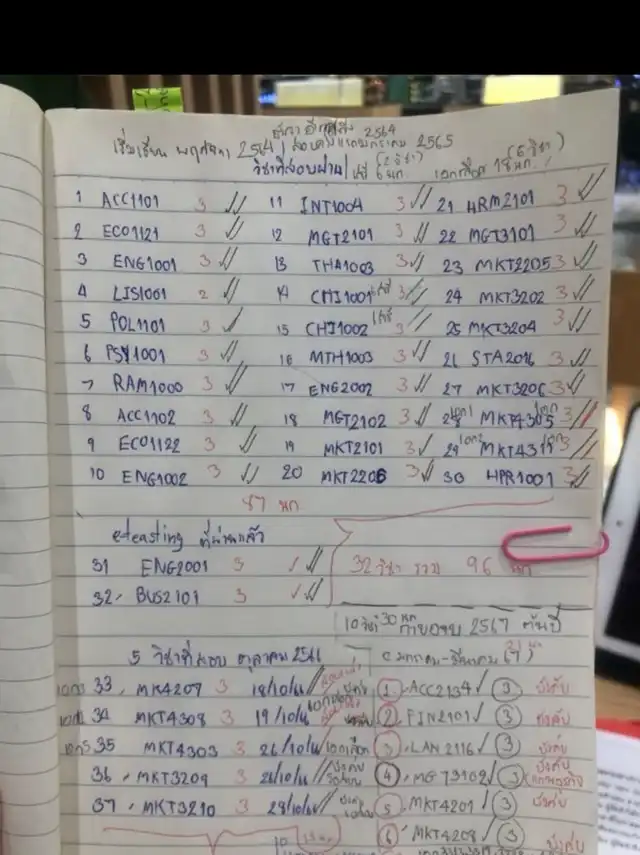 เริ่มเรียน พฤศจิกา 2564 | สอบ 2565
2564
วิชาที่สอบผ่าน | เสรี (2 วิชา) 6 นก. เอกเลือก 18 นก. (6 วิชา)
1 ACC1101 3 // 11 INT1004 3 // 21 HRM2101 3 //
2 ECO1121 3 // 12 MGT2101 3 // 22 MGT3101 3 //
3 ENG1001 3 // 13 THA1003 3 // 23 MKT2205 3 //
4 LIS1001 2 // 14 CHI1001 เสรี 3 // 24 MKT3202 3 //
5 POL1101 3 / 15 CHI1002 เสรี 3 // 25 MKT3204 3 //
6 PSY1001 3 // 16 MTH1003 3 // 26 STA2016 3 //
7 RAM1000 3 // 17 ENG2002 3 // 27 MKT3206 3 //
8 ACC1102 3 // 18 MGT2102 3 // 28 เอก1 MKT4305 เอก 3 //
9 ECO1122 3 // 19 MKT2101 3 / 29 เอก2 MKT4319 เอก 3 //
10 ENG1002 3 // 20 MKT2206 3 // 30 HPR1001 3 //
87 นก
e-teasting ที่ผ่านแล้ว
31 ENG2001 3 / // 32 วิชา รวม 96 นก
32, BUS2101 3 / //
10 วิชา 30 นก 2567 ต้นปี
5 วิชาที่สอบ ตุลาคม 2566
มกราคม-มีนาคม (7) 21 นก
เอก3 33, MK4207 3 18/10/ // 1 ACC2134 / 3 บังคับ
เอก4 34 MKT4308 3 19/10/ // 2 FIN2101 / 3 บังคับ
เอก5 35 MKT4303 3 26/10/ // เอกเลือก 3 LAN2116 / 3 บังคับ
36, MKT3209 3 // บังคับ 4 MGT3102 / 3 บังคับ
37, MKT3210 3 28/10/ // 5 MKT4201 / 3 บังคับ
6 MKT4208 / 3 บังคับ